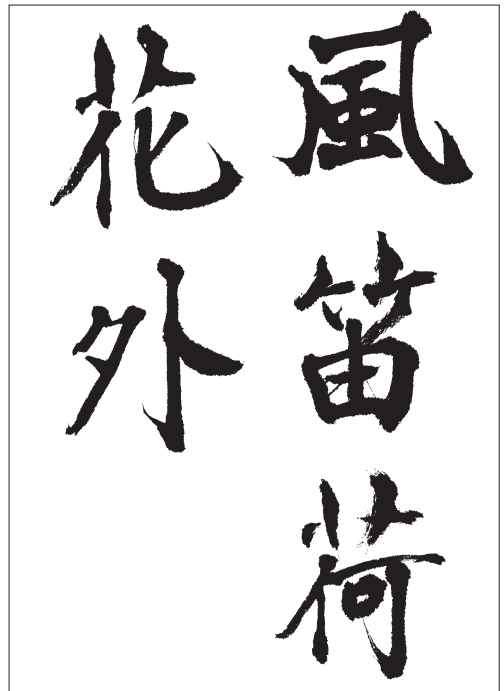 風笛荷
花外